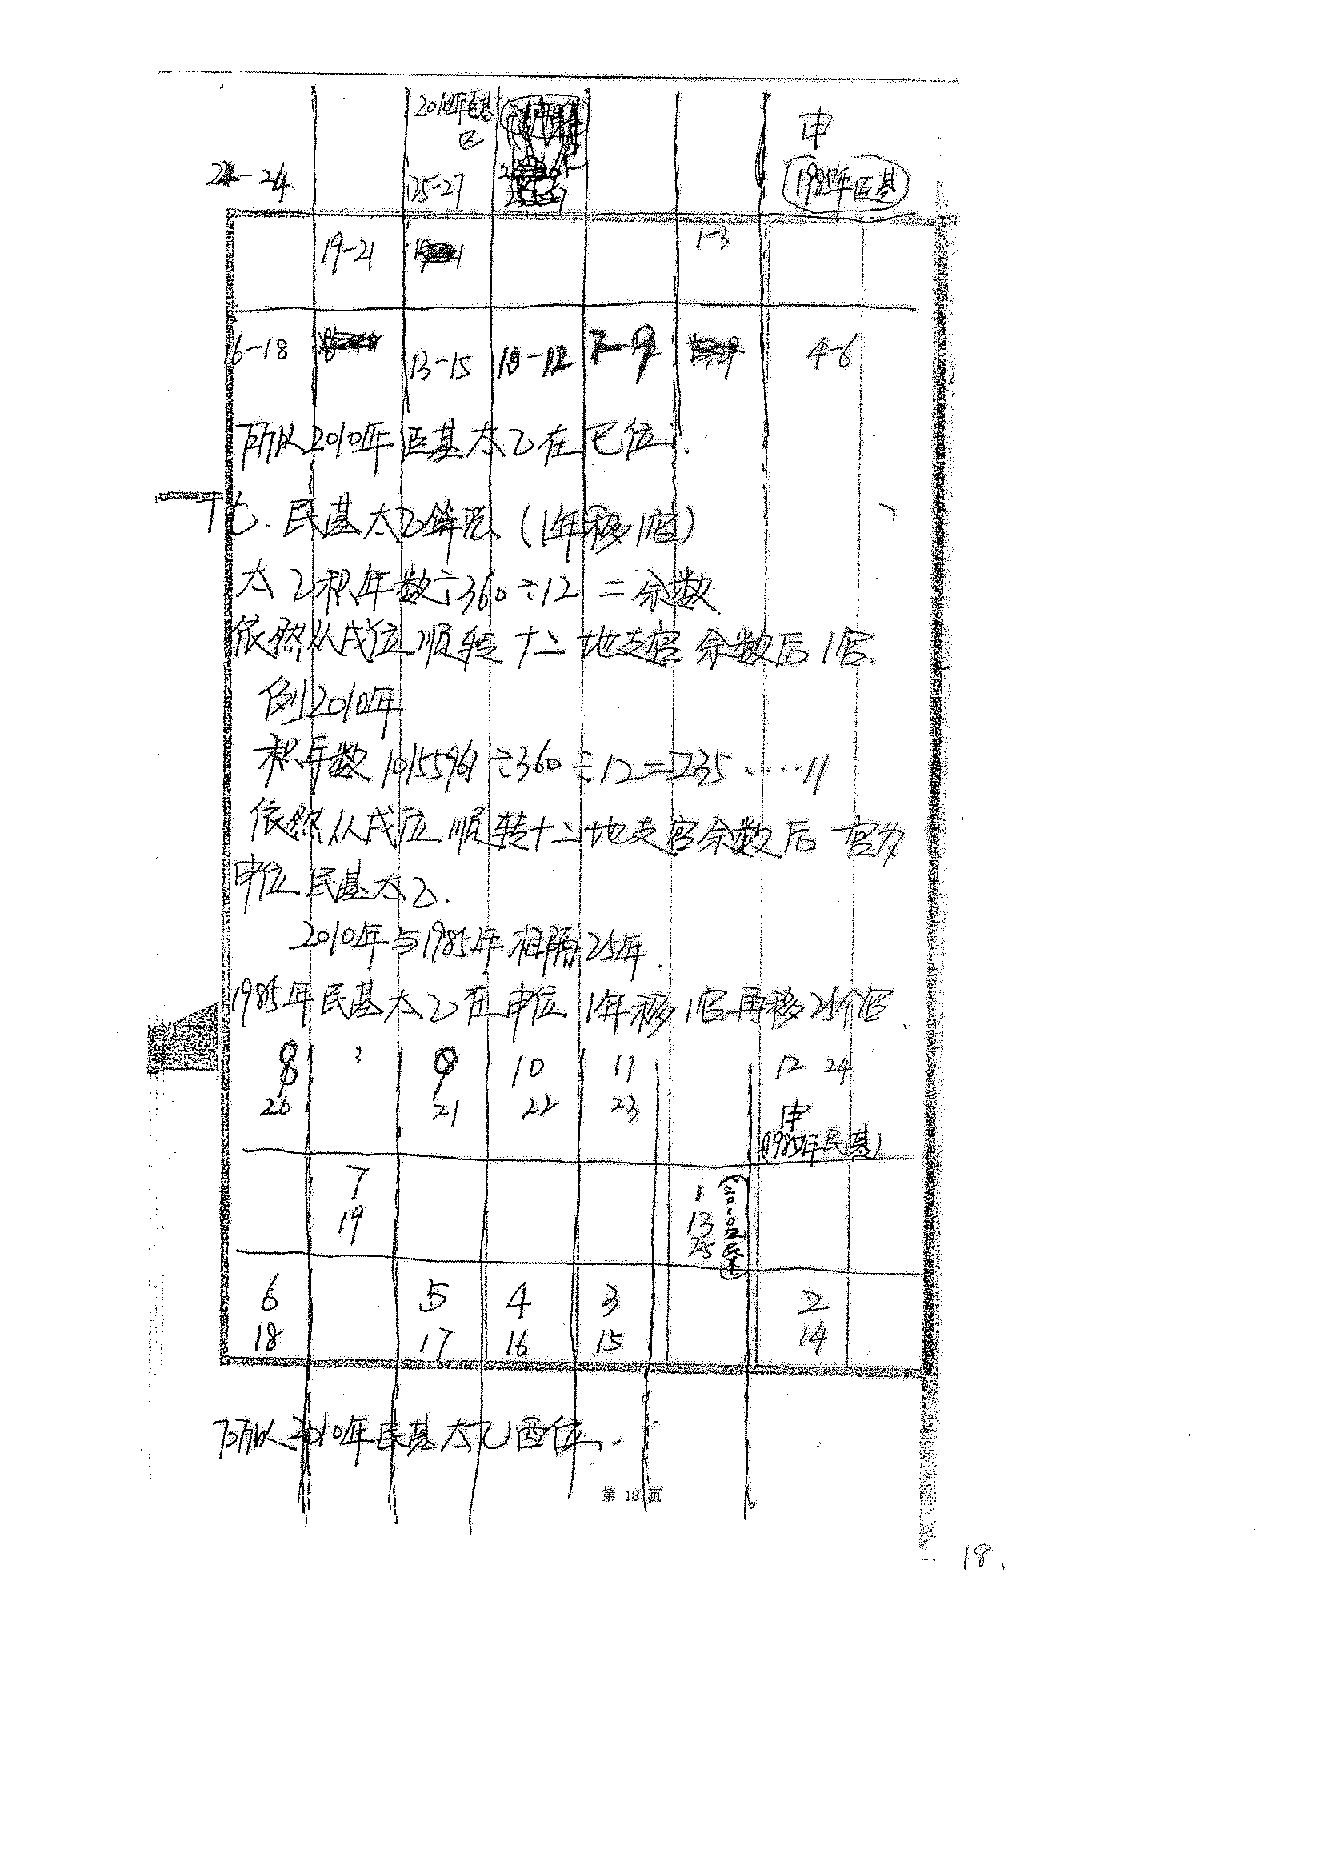 2010年臣基
巳
申
22-24
25-27
1985年臣基
19-21
1-3
16-18
13-15
10-12
7-9
4-6
所以2010年臣基太乙在巳位.
十七. 民基太乙算法 (1年移1宫)
太乙积年数÷360÷12 = 余数
依然从戌位顺转十二地支宫余数后1宫.
例2010年
积年数 101559 ÷360÷12=235……11
依然从戌位顺转十二地支宫余数后一宫为
申位民基太乙.
2010年与1985年相隔25年.
1985年民基太乙在申位 1年移1宫再移25个宫.
8 9 10 11 12 24
20 21 22 23 申
(1985年民基)
7 1
19 13
25
6 5 4 3 2
18 17 16 15 14
所以2010年民基太乙酉位.
第 18 页
18.